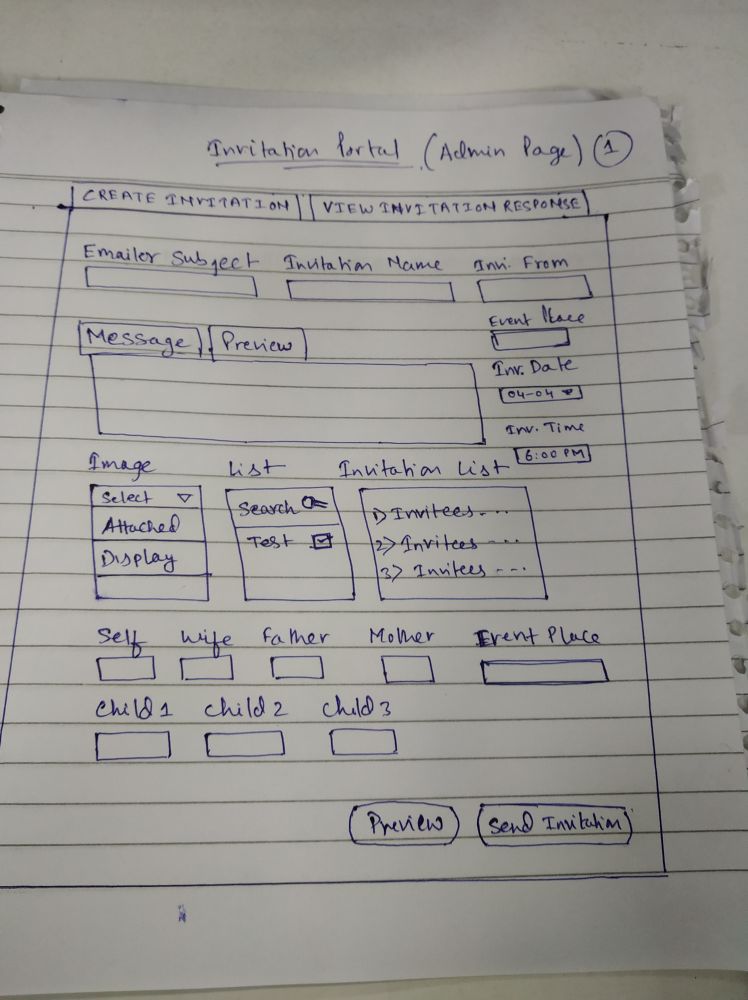 Invitation Portal (Admin Page) 1
CREATE INVITATION VIEW INVITATION RESPONSE
Emailer Subject Invitation Name Invi. From
Event Place
Message Preview
Inv. Date
04-04
Inv. Time
6:00 PM
Image List Invitation List
Select Search 1) Invitees...
Attached Test 2) Invitees ...
Display 3) Invitees ---
Self Wife Father Mother Event Place
Child 1 Child 2 Child 3
Preview Send Invitation